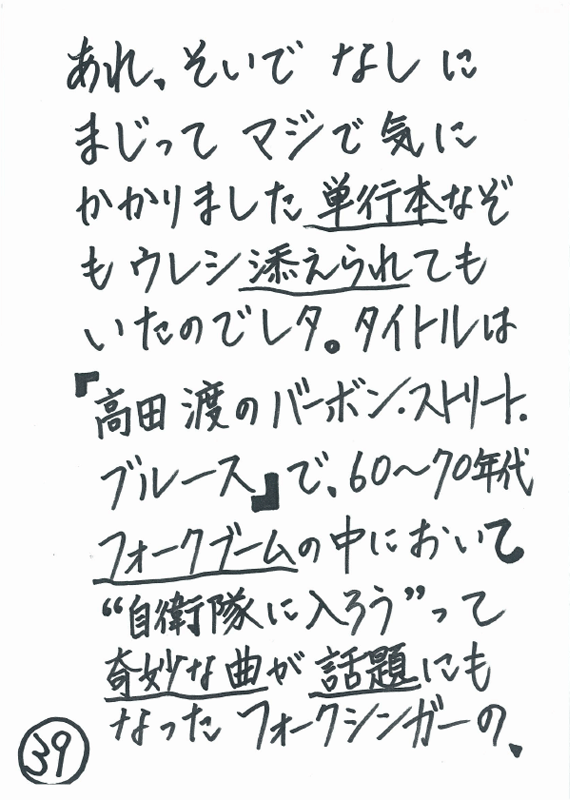 あれ、そいで なし に
まじって マジで 気に
かかりました 単行本なぞ
も ウレシ 添えられても
いたのでレタ。タイトルは
『高田 渡のバーボン・ストリート・
ブルース』で、60〜70年代
フォークブームの中において
“自衛隊に入ろう”って
奇妙な曲が 話題にも
なった フォークシンガーの、
39